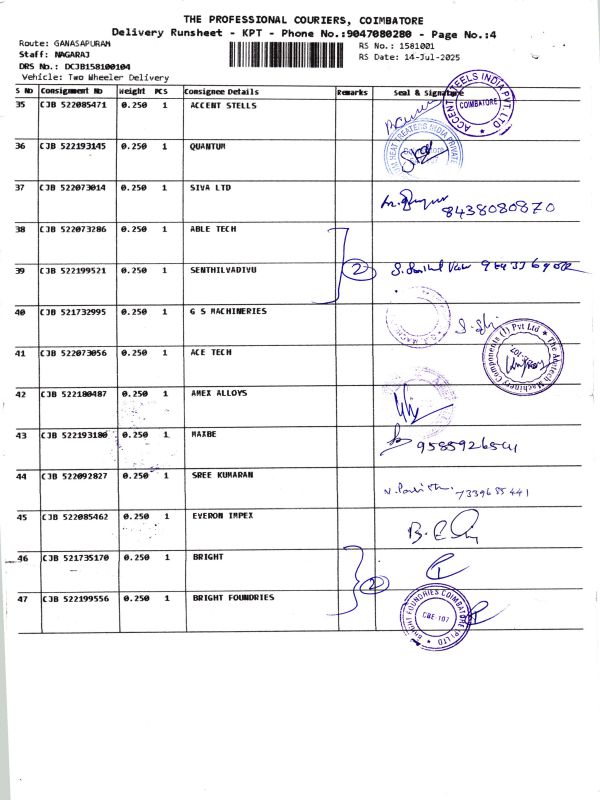 THE PROFESSIONAL COURIERS, COIMBATORE
Delivery Runsheet - KPT - Phone No.:9047080280 - Page No.:4
Route: GANASAPURAM
Staff: NAGARAJ
DRS No.: DCJB158100104
Vehicle: Two Wheeler Delivery
RS No.: 1581001
RS Date: 14-Jul-2025
S No Consignment No Weight PCS Consignee Details Remarks Seal & Signature
35 CJB 522085471 0.250 1 ACCENT STELLS
COIMBATORE
36 CJB 522193145 0.250 1 QUANTUM
HEAT TREATERS INDIA PRIVATE
37 CJB 522073014 0.250 1 SIVA LTD
8438080870
38 CJB 522073286 0.250 1 ABLE TECH
2
39 CJB 522199521 0.250 1 SENTHILVADIVU
40 CJB 521732995 0.250 1 G S MACHINERIES
41 CJB 522073056 0.250 1 ACE TECH
Machinery Components (I) Pvt Ltd
42 CJB 522180487 0.250 1 AMEX ALLOYS
43 CJB 522193180 0.250 1 MAXBE
9585926541
44 CJB 522092827 0.250 1 SREE KUMARAN
7339655441
45 CJB 522085462 0.250 1 EVERON IMPEX
46 CJB 521735170 0.250 1 BRIGHT
2
47 CJB 522199556 0.250 1 BRIGHT FOUNDRIES
BRIGHT FOUNDRIES COIMBATORE (P) LTD
CBE-107